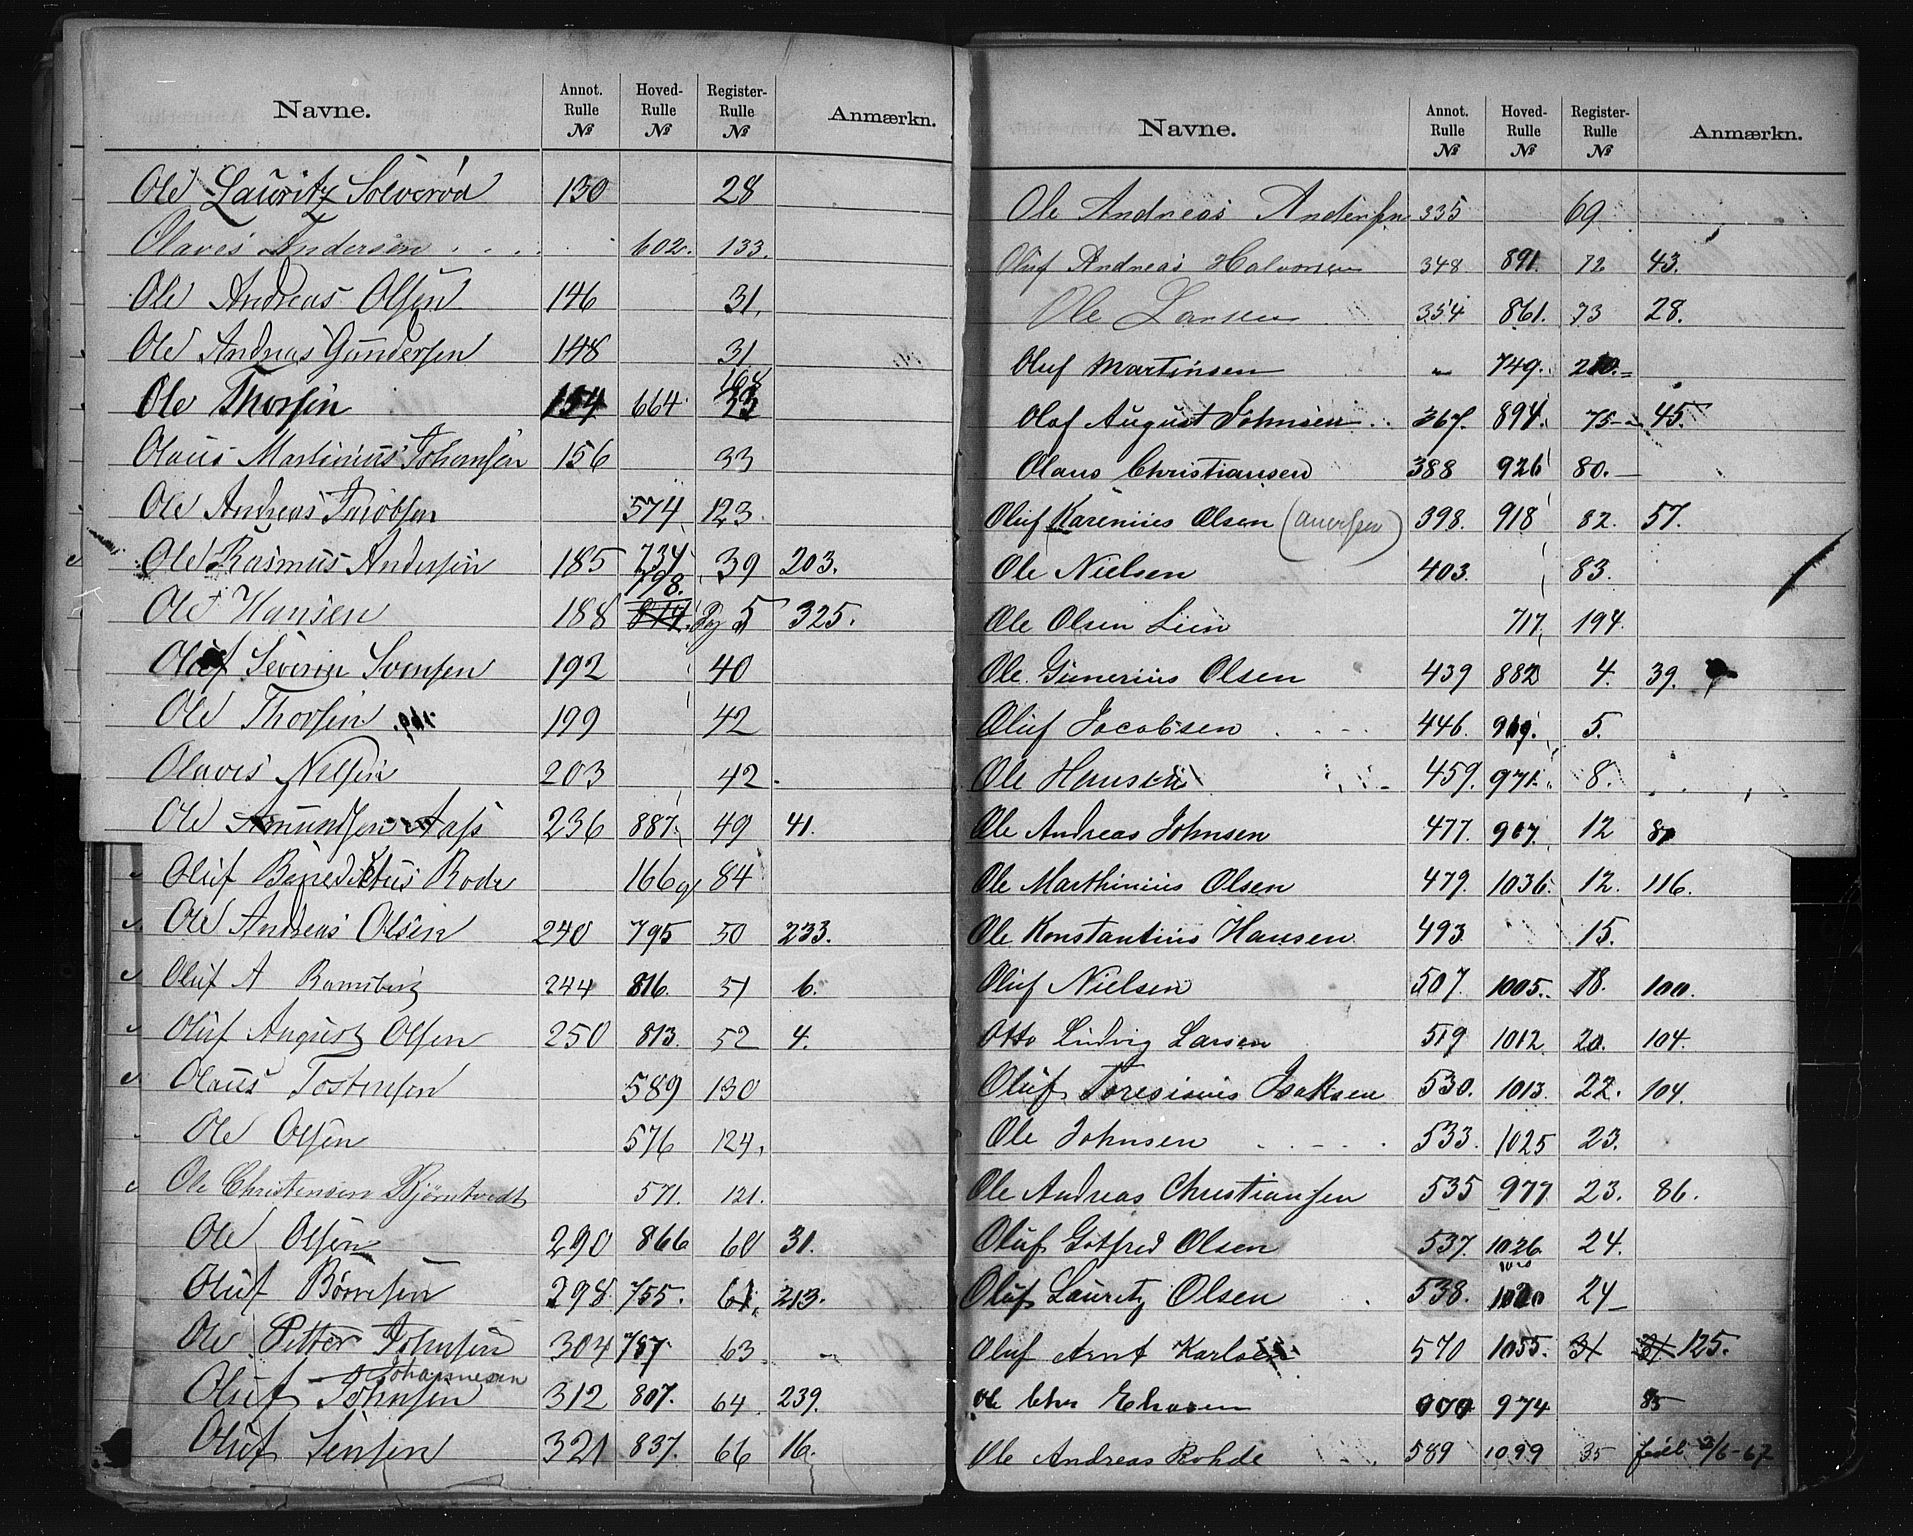 Navne. Annot. Rulle № Hoved- Rulle № Register- Rulle № Anmærkn.
Ole Lauritz Solverød 130 28
Olaves Andersen 602. 133.
Ole Andreas Olsen 146 31.
Ole Andreas Gundersen 148 31
Ole Thorsen 154 664 168 33
Olaus Martinius Johansen 156 33
Ole Andreas Jacobsen 574 123.
Ole Rasmus Andersen 185 734 39 203.
Ole Hansen 188 798. 5 325.
Oluf Severin Svensen 192 40
Ole Thorsen 199 42
Olaves Nelsen 203 42.
Ole Amundsen Aass 236 887. 49 41.
Oluf Benediktus Rode 166 84
Ole Andreas Olsen 240 795 50 233.
Oluf A Ramsberg 244 816. 51 6.
Oluf August Olsen 250 813. 52 4.
Olaus Tostensen 589 130
Ole Olsen 576 124.
Ole Christensen Bjørntvedt 571. 121.
Ole Olsen 290 866 60 31.
Oluf Børresen 298. 755. 61. 213.
Ole Petter Johnsen 304 757. 63.
Johannesen
Oluf Johnsen 312 807. 64. 239.
Oluf Jensen 321 837. 66 16.
Navne. Annot. Rulle № Hoved- Rulle № Register- Rulle № Anmærkn.
Ole Andreas Andersen 335 69
Oluf Andreas Halvorsen 348 891. 72 43.
Ole Larsen 354 861. 73 28.
Oluf Martinsen „ 749. 210.
Olaf August Johnsen 367. 894. 75 45.
Olaus Christiansen 388 926 80.
Oluf Karenius Olsen 398. 918 82. 57.
Ole Nielsen 403. 83.
Ole Olsen Lien 717. 194.
Ole Gunerius Olsen 439 882 4. 39.
Oluf Jacobsen 446. 919. 5.
Ole Hansen 459. 971. 8.
Ole Andreas Johnsen 477. 907. 12
Ole Marthinius Olsen 479. 1036. 12. 116.
Ole Konstantius Hansen 493. 15.
Oluf Nielsen 507. 1005. 18. 100.
Otto Ludvig Larsen 519 1012 20. 104.
Oluf Toresius Isaksen 530. 1013. 22. 104.
Ole Johnsen 533. 1025 23.
Ole Andreas Christiansen 535 977 23. 86.
Oluf Gotfred Olsen 537. 1026 24.
Oluf Lauritz Olsen 538. 1020 24
Oluf Arnt Karlsen 570 1055. 31 31 125.
Ole Chr 974 85
Ole Andreas Rohde 589 1099 35 2/6-67